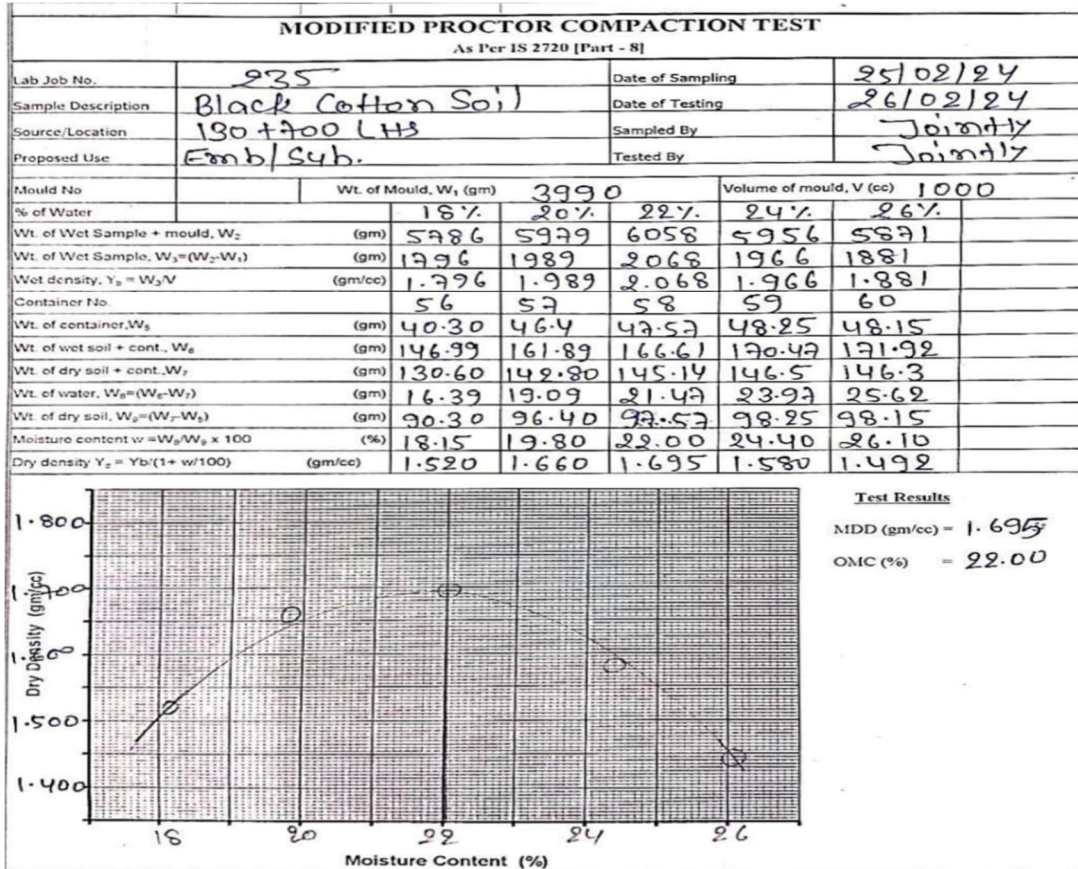 MODIFIED PROCTOR COMPACTION TEST
As Per IS 2720 [Part - 8]
Lab Job No. 235 Date of Sampling 25/02/24
Sample Description Black Cotton Soil Date of Testing 26/02/24
Source/Location 130+700 LHS Sampled By Jointly
Proposed Use Emb/Sub. Tested By Jointly
Mould No Wt. of Mould, W₁ (gm) 3990 Volume of mould, V (cc) 1000
% of Water 18% 20% 22% 24% 26%
Wt. of Wet Sample + mould, W₂ (gm) 5786 5979 6058 5956 5871
Wt. of Wet Sample, W₃=(W₂-W₁) (gm) 1796 1989 2068 1966 1881
Wet density, Yᵦ = W₃/V (gm/cc) 1.796 1.989 2.068 1.966 1.881
Container No. 56 57 58 59 60
Wt. of container,W₅ (gm) 40.30 46.4 47.57 48.25 48.15
Wt. of wet soil + cont., W₆ (gm) 146.99 161.89 166.61 170.47 171.92
Wt. of dry soil + cont.,W₇ (gm) 130.60 142.80 145.14 146.5 146.3
Wt. of water, W₈=(W₆-W₇) (gm) 16.39 19.09 21.47 23.97 25.62
Wt. of dry soil, W₉=(W₇-W₅) (gm) 90.30 96.40 97.57 98.25 98.15
Moisture content w =W₈/W₉ x 100 (%) 18.15 19.80 22.00 24.40 26.10
Dry density Yz = Yb/(1+ w/100) (gm/cc) 1.520 1.660 1.695 1.580 1.492
Test Results
MDD (gm/cc) = 1.695
OMC (%) = 22.00
1.800
1.700
1.500
1.400
Dry Density (gm/cc)
18 20 22 24 26
Moisture Content (%)